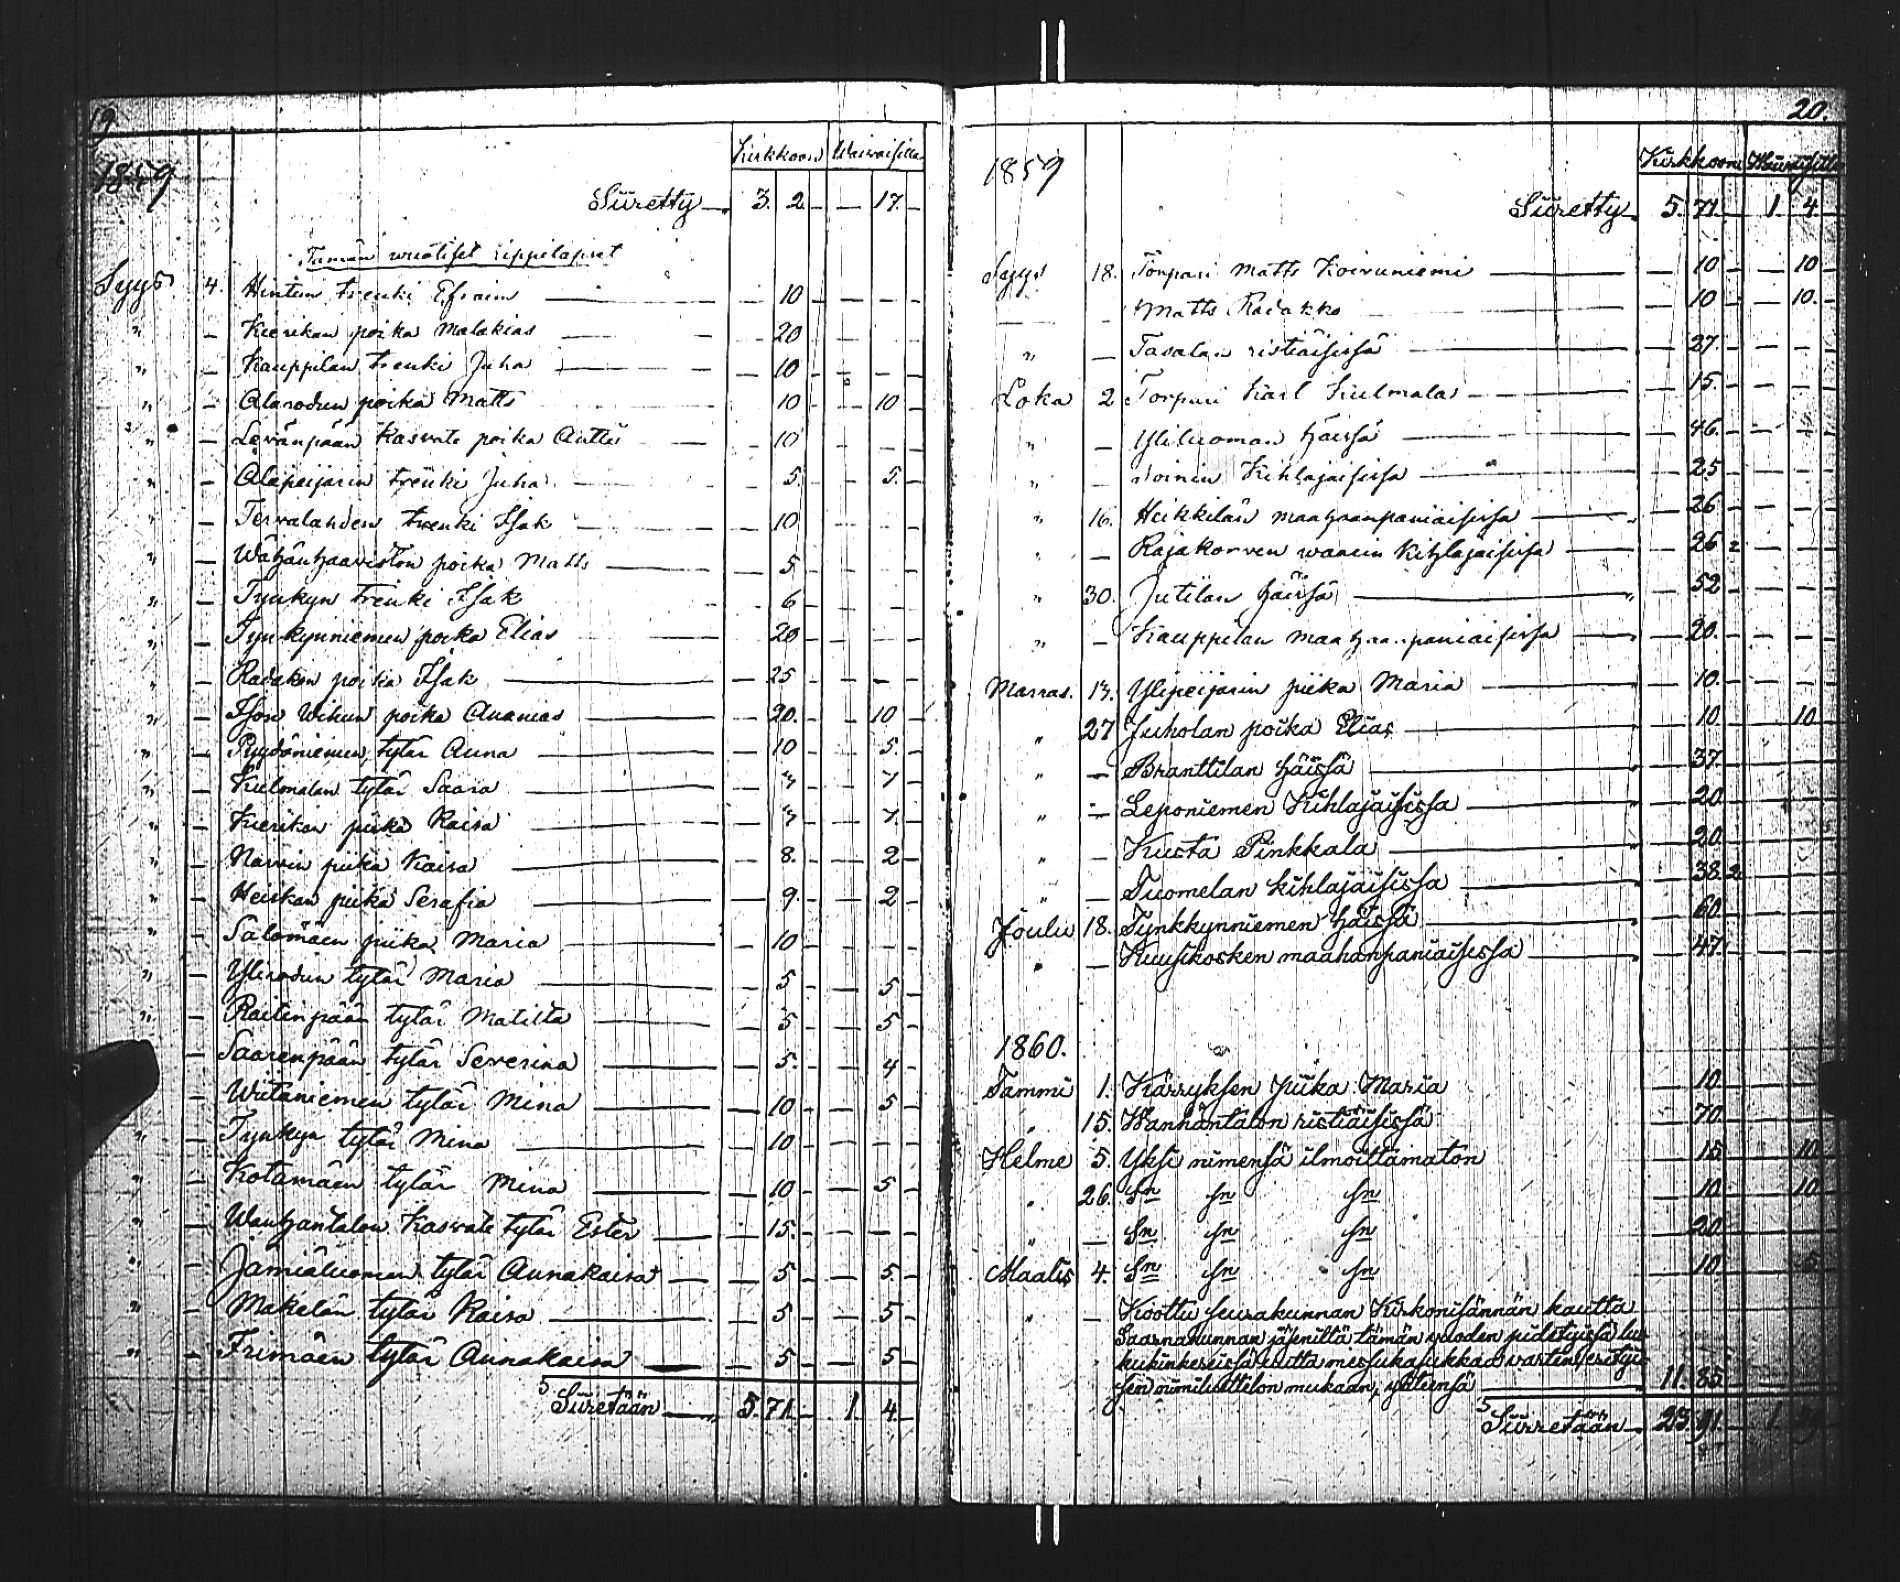 19
1859
Kirkkoon Waivaisilla
Siiretty 3. 2 - - 17. -
Tämän wuotiset rippilapset
Syys 4. Hintun trenki Efraim - 10 - - - -
" - Kierikan poika Malakias - 20 - - - -
" - Kauppilan trenki Juha - 10 - - - -
" - Alarodun poika Matts - 10 - - 10 -
" - Levänpään Kasvate poika Antti - 10 - - - -
" - Alapeijarin trenki Juha - 5. - - 5. -
" - Tervalahden trenki Isak - 10 - - - -
" - Wähänhaaviston poika Matts - 5 - - - -
" - Tynkyn trenki Isak - 6 - - - -
" - Tynkynniemen poika Elias - 20 - - - -
" - Radakon poika Isak - 25 - - - -
" - Ison Wihun poika Ananias - 20. - - 10 -
" - Pyydöniemen tytär Anna - 10 - - 5. -
" - Kulmalan tytär Saara
" - Kierikan piika Kaisa
" - Narvin piika Kaisa - 8. - - 2 -
" - Heiskan piika Serafia - 9. - - 2 -
" - Salomäen piika Maria - 10 - - - -
" - Ylirodun tytär Maria - 5 - - 5 -
" - Raitinpään tytär Matilta - 5 - - 5 -
- Saarenpään tytär Severina - 5. - - 4 -
- Wiitaniemen tytär Mina - 10 - - 5 -
" - Tynkyn tytär Mina - 10 - - - -
" - Kotamäen tytär Mina - 10 - - 5 -
" - Wanhantalon Kasvate tytär Ester - 15. - - - -
" - Jämiäluoman tytär Annakaisa - 5 - - 5. -
" - Makelän tytär Kaisa - 5 - - 5 -
" - Frimäen tytär Annakaisa - 5 - - 5 -
Siiretään 5. 71. - 1. 4. -
20.
1859
Kirkkoon Waivaisilla
Siiretty 5. 71. - 1. 4. -
Syys 18. Torpari Matts Koivuniemi - 10 - - 10 -
- - Matts Radakko - 10 - - 10. -
" - Tasalan ristiäisissä - 27. - - - -
Loka 2 Torpari Karl Kulmala - 15. - - - -
" - Yliluoman häissä - 46. - - - -
" - Kihlajaisissa - 25 - - - -
" 16. Heikkilän maahanpaniaisissa - 26 - - - -
" - Rajakorven waarin Kihlajaisissa - 26 2 - - -
" 30. Jutilan häissä - 52 - - - -
" - Kauppilan maahanpaniaisissa - 20. - - - -
Marras. 13. Ylipeijarin piika Maria - 10. - - - -
" 27 Juholan poika Elias - 10 - - 10
" - Branttilan häissä - 37. - - - -
" - Leponiemen Kihlajaisissa - 20. - - - -
" - Kusta Pinkkala - 20. - - - -
" - Tuomelan kihlajaisissa - 38 2 - - -
Joulu 18. Tynkkynniemen häissä - 60 - - - -
" - Kuusikosken maahanpaniaisissa - 47. - - - -
1860.
Tammi 1. Kärryksen piika Maria - 10
" 15. Wanhantalon ristiäisissä - 70.
Helme 5. Yksi nimensä ilmoittamaton - 15 10
" 26. Sn Sn Sn - 10 10
" - Sn Sn Sn - 20
Maalis 4. Sn Sn Sn - 10. 5
" - Koottu seurakunnan Kirkonisännän kautta
Saarnahunnan jäseniltä tämän vuoden pidetyissä lu-
kukinkereissä uutta messukasukkaa varten, erityi-
sen nimiluettelon mukaan, yhteensä 11. 85
Siirretään 23. 91. 1